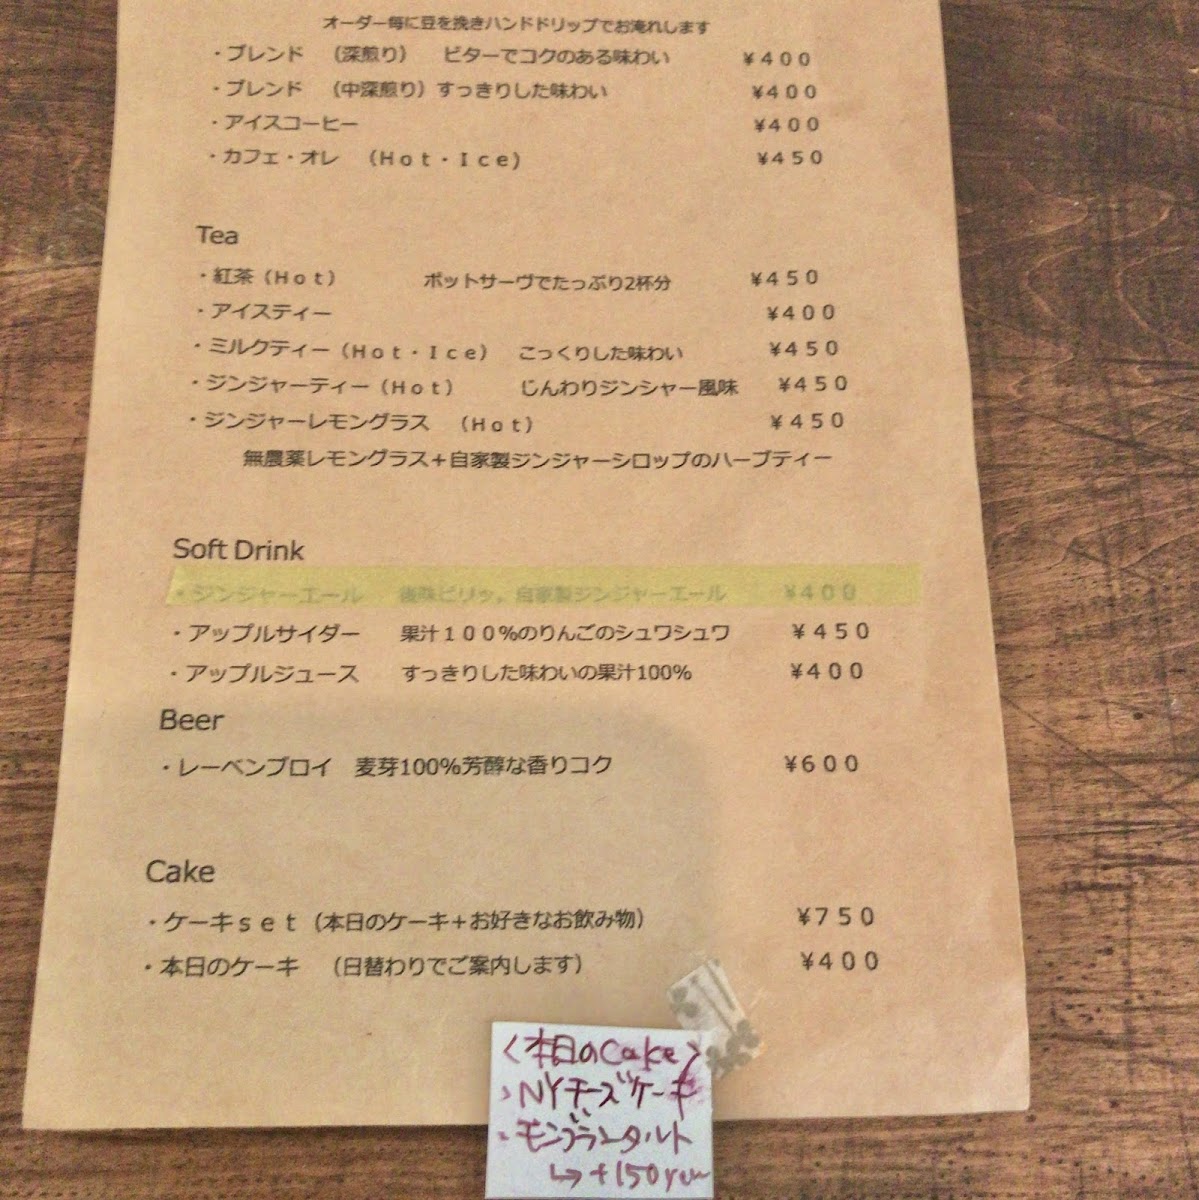 オーダー毎に豆を挽きハンドドリップでお淹れします
・ブレンド （深煎り） ビターでコクのある味わい ¥400
・ブレンド （中深煎り）すっきりした味わい ¥400
・アイスコーヒー ¥400
・カフェ・オレ （Hot・Ice） ¥450
Tea
・紅茶（Hot） ポットサーヴでたっぷり2杯分 ¥450
・アイスティー ¥400
・ミルクティー（Hot・Ice） こっくりした味わい ¥450
・ジンジャーティー（Hot） じんわりジンシャー風味 ¥450
・ジンジャーレモングラス （Hot） ¥450
無農薬レモングラス＋自家製ジンジャーシロップのハーブティー
Soft Drink
・ジンジャーエール 後味ピリッ、自家製ジンジャーエール ¥400
・アップルサイダー 果汁１００％のりんごのシュワシュワ ¥450
・アップルジュース すっきりした味わいの果汁100% ¥400
Beer
・レーベンブロイ 麦芽100%芳醇な香りコク ¥600
Cake
・ケーキｓｅｔ（本日のケーキ＋お好きなお飲み物） ¥750
・本日のケーキ （日替わりでご案内します） ¥400
〈本日のCake〉
・NYチーズケーキ
・モンブランタルト
↳ +150yen